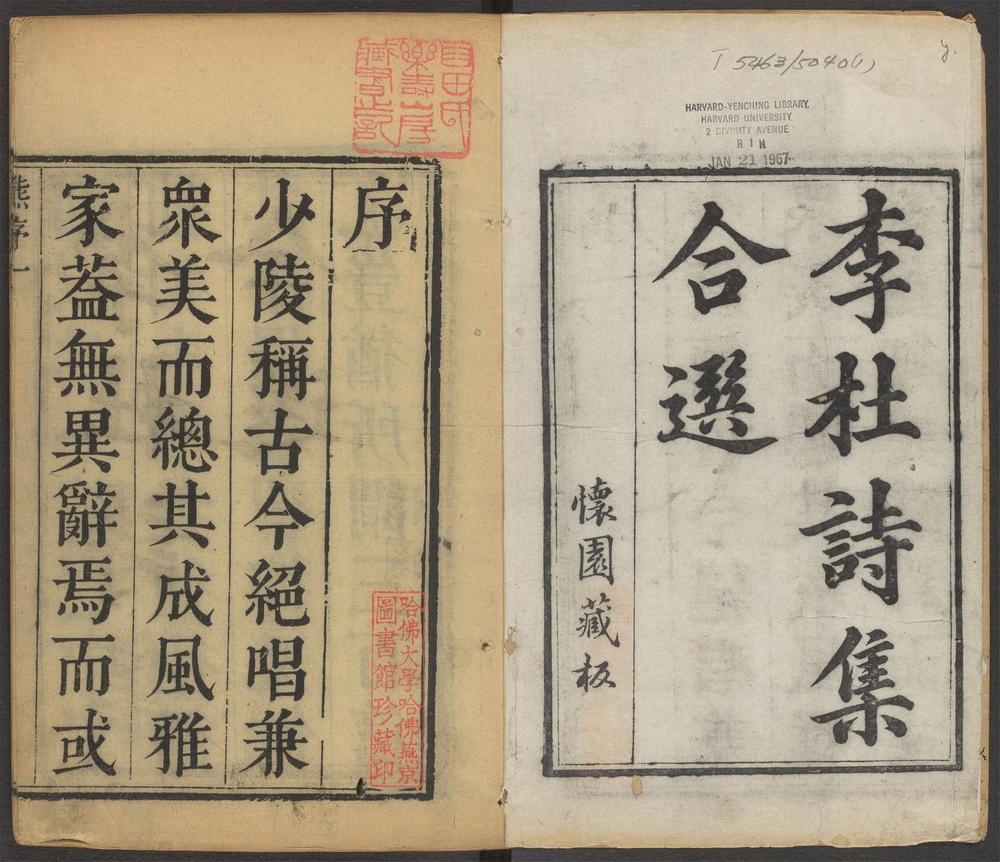 T 5463/5040(1)
HARVARD-YENCHING LIBRARY
HARVARD UNIVERSITY
2 DIVINITY AVENUE
JAN 21 1967
李杜詩集
合選
懷園藏板
序
少陵稱古今絕唱兼
衆美而總其成風雅
家葢無異辭焉而或
熊序
一
哈佛大學哈佛燕京
圖書館珍藏印
田氏
樂壽山房
藏書記